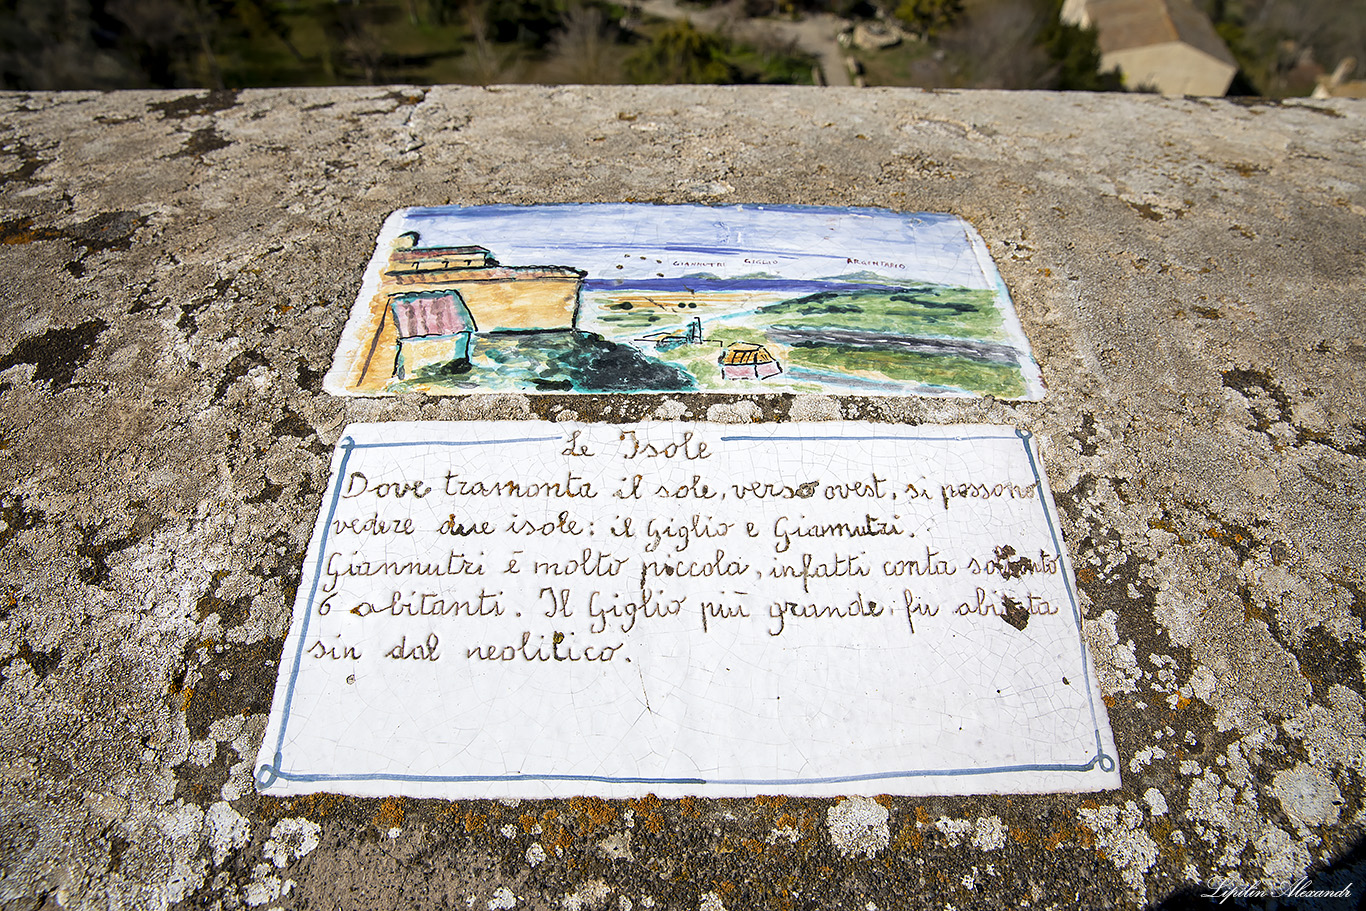 GIANNUTRI GIGLIO ARGENTARIO
Le Isole
Dove tramonta il sole, verso ovest, si possono
vedere due isole: il Giglio e Giannutri.
Giannutri è molto piccola, infatti conta soltanto
6 abitanti. Il Giglio più grande, fu abitata
sin dal neolitico.
Lipilin Alexandr